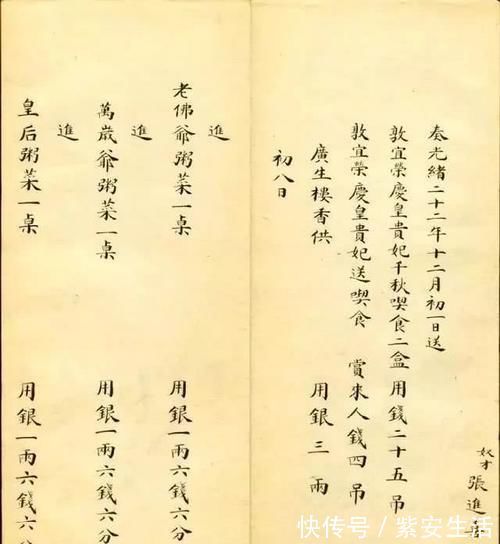 奴才張進喜
奏光緒二十二年十二月初一日送
敦宜榮慶皇貴妃千秋喫食二盒用錢二十五吊
敦宜榮慶皇貴妃送喫食 賞來人錢四吊
廣生樓香供 用銀三兩
初八日
進
老佛爺粥菜一桌 用銀一兩六錢六分
進
萬歲爺粥菜一桌 用銀一兩六錢六分
進
皇后粥菜一桌 用銀一兩六錢六分
快传号／紫安生活